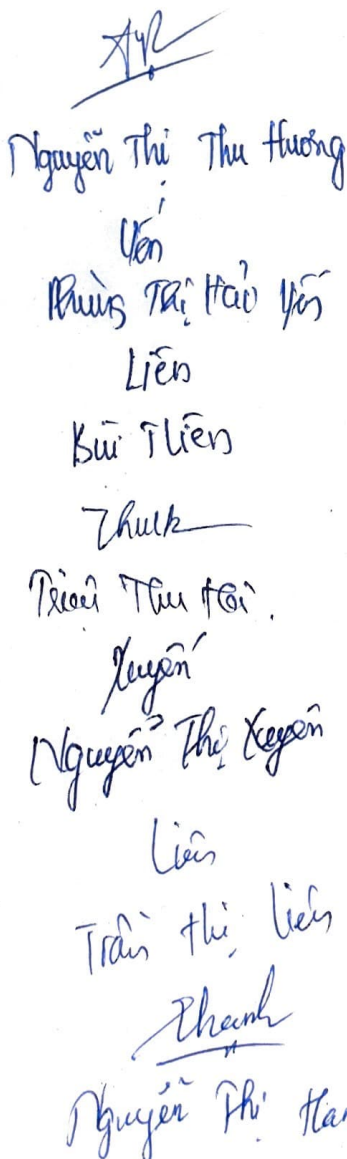 Nguyễn Thị Thu Hương
Yến
Phùng Thị Hảo Yến
Liên
Bùi T Liên
Thu Hà
Xuyến
Nguyễn Thị Xuyến
Liên
Trần Thị Liên
Thanh
Nguyễn Thị